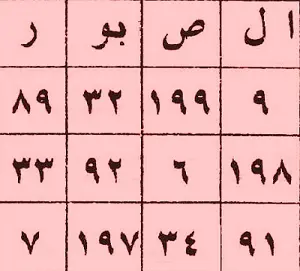 ال ص بو ر
٩ ١٩٩ ٣٢ ٨٩
١٩٨ ٦ ٩٢ ٣٣
٩١ ٣٤ ١٩٧ ٧